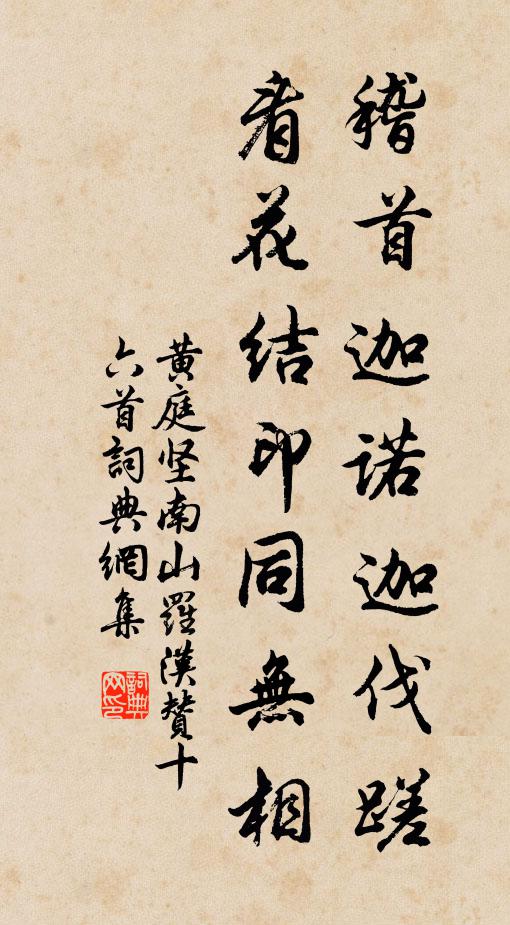 稽首迦諾迦伐蹉
看花結印同無相
黄庭坚南山羅漢贊十
六首詞典網集
詞典网印